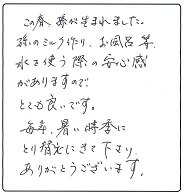 この春 孫が生まれました。
孫のミルク作り、お風呂 等
水を使う際の安心感
がありますので
とても良いです。
毎年、暑い時季に
とり替えにきて下さり
ありがとうございます。